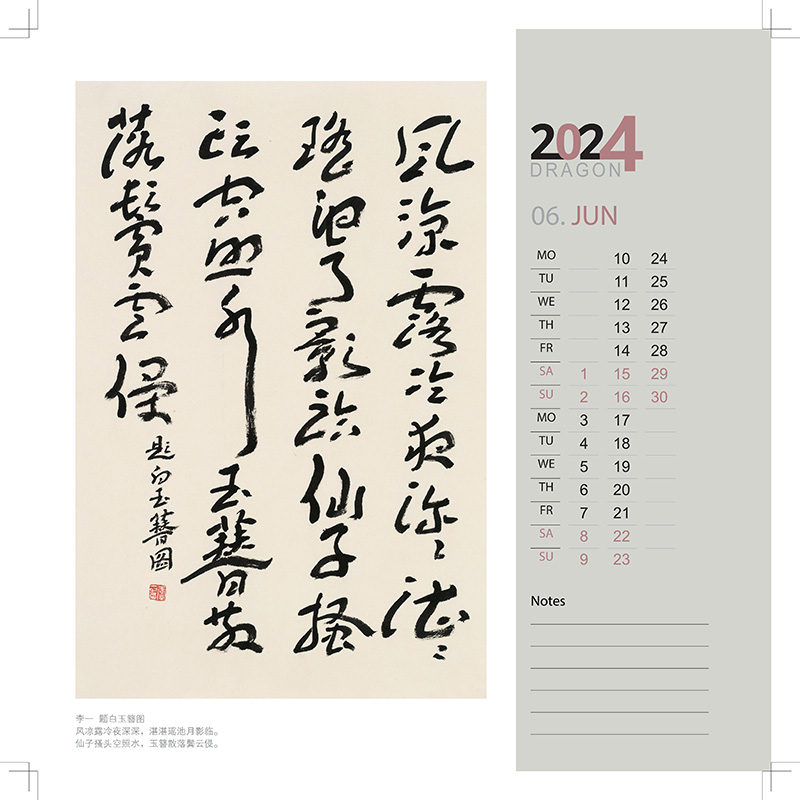 风凉露冷夜深〻湛〻
瑶池月影临仙子搔
头空照水玉簪散
落鬓云侵
题白玉簪图
李一 题白玉簪图
风凉露冷夜深深，湛湛瑶池月影临。
仙子搔头空照水，玉簪散落鬓云侵。
2024
DRAGON
06. JUN
MO 10 24
TU 11 25
WE 12 26
TH 13 27
FR 14 28
SA 1 15 29
SU 2 16 30
MO 3 17
TU 4 18
WE 5 19
TH 6 20
FR 7 21
SA 8 22
SU 9 23
Notes